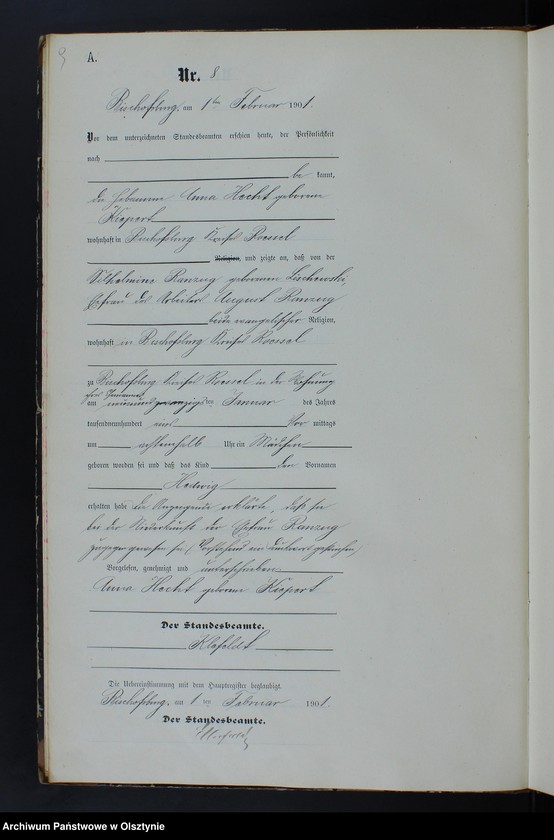 9
A.
Nr. 8
Bischofsburg, am 1ten Februar 1901.
Vor dem unterzeichneten Standesbeamten erschien heute, der Persönlichkeit
nach
be kannt,
die Hebamme Anna Hecht geborene
Kiepert
wohnhaft in Bischofsburg Kreises Roessel
Religion, und zeigte an, daß von der
Wilhelmine Ranzug geborenen Lischewski,
Ehefrau des Arbeiters August Ranzug
beide evangelischer Religion,
wohnhaft in Bischofsburg Kreises Roessel
zu Bischofsburg Kreises Roessel in der Wohnung
ihres Ehemannes
am neunundzwanzigsten Januar des Jahres
tausendneunhundert eins Vor mittags
um achteinhalb Uhr ein Mädchen
geboren worden sei und daß das Kind den Vornamen
Hedwig
erhalten habe die Anzeigende erklärte, daß sie
bei der Niederkunft der Ehefrau Ranzug
zugegen gewesen sei (Vorstehend ein Druckwort gestrichen)
Vorgelesen, genehmigt und unterschrieben
Anna Hecht geborene Kiepert
Der Standesbeamte.
Klefeldt
Die Uebereinstimmung mit dem Hauptregister beglaubigt.
Bischofsburg, am 1ten Februar 1901.
Der Standesbeamte.
Archiwum Państwowe w Olsztynie